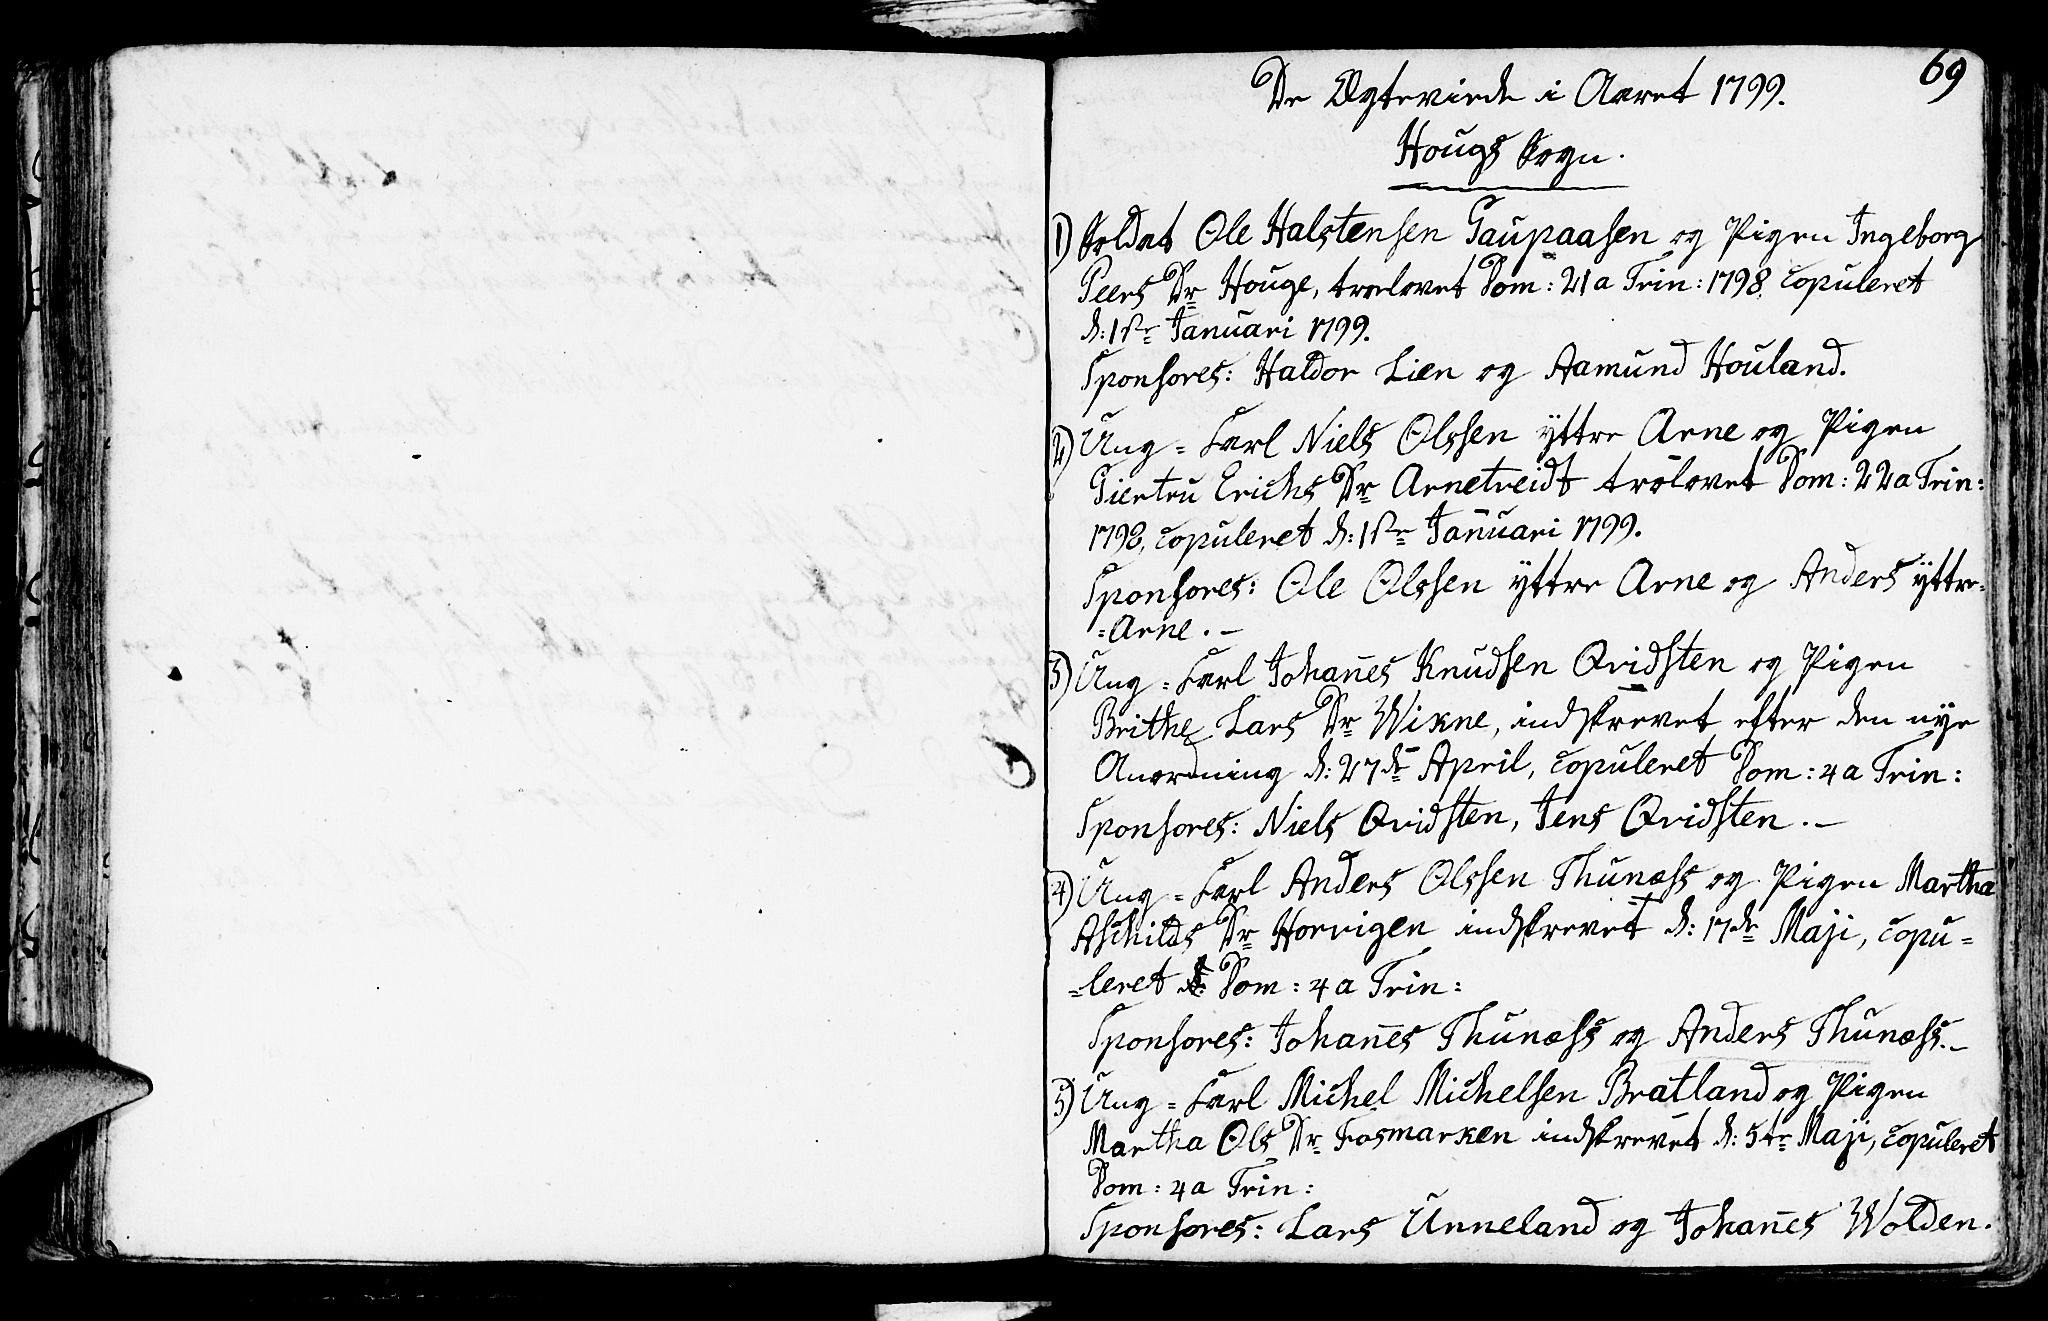 69
De Ægteviede i Aaret 1799.
Hougs Sogn.
1) Soldat Ole Halstensen Gaupaasen og Pigen Ingeborg
Peers Dr Houge, trolovet Dom: 21 a Trin: 1798. copuleret
d: 1ste Januari 1799.
Sponsores: Haldor Lien og Aamund Houland.
2) Ung = Karl Niels Olssen yttre Arne og Pigen
Giertru Erichs Dr Arnetveidt trolovet Dom: 22 a Trin:
1798, copuleret d: 1ste Januari 1799.
Sponsores: Ole Olssen yttre Arne og Anders yttre=
=Arne. –
3) Ung = Karl Johan̄es Knudsen Qvidsten og Pigen
Brithe Lars Dr Wikne, indskrevet efter den nye
Anordning d: 27de April, copuleret Dom: 4 a Trin:
Sponsores: Niels Qvidsten, Jens Qvidsten. –
4) Ung = Karl Anders Olssen Thunæss og Pigen Martha
Aschilds Dr Horvigen indskrevet d: 17de Maji, copu=
=leret Dom: 4 a Trin:
Sponsores: Johan̄es Thunæss og Anders Thunæss. –
5) Ung = Karl Michel Michelsen Bratland og Pigen
Martha Ols Dr Fosmarken indskrevet d: 5te Maji, copuleret
Dom: 4 a Trin:
Sponsores: Lars Unneland og Johan̄es Wolden.